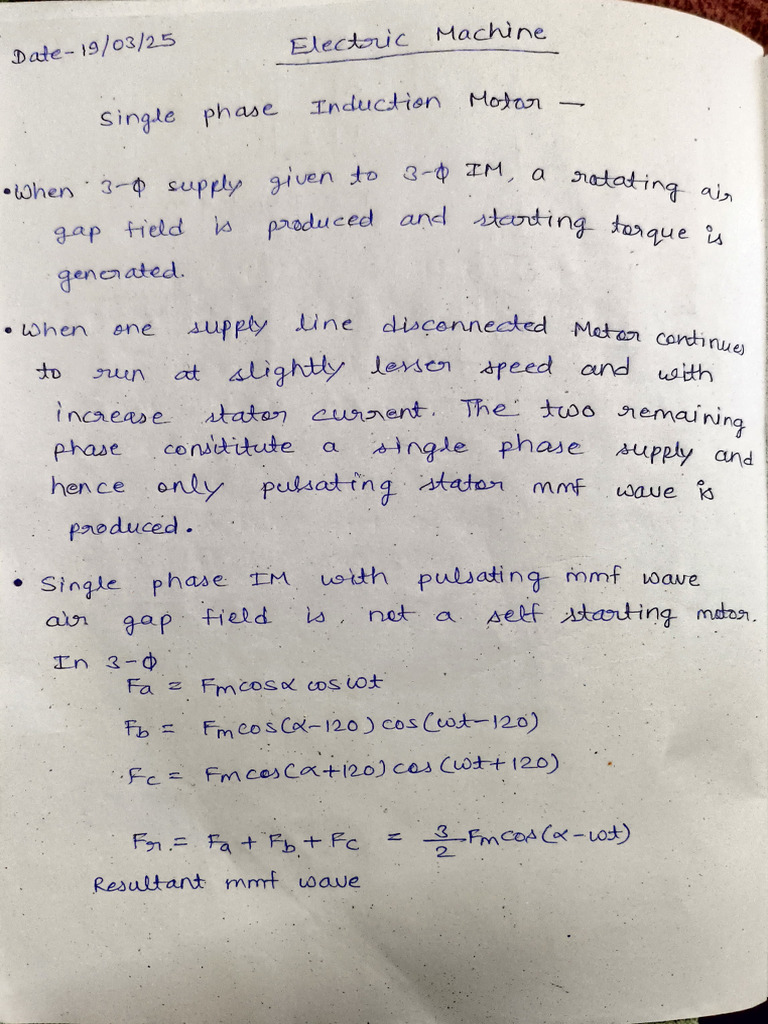 Date-19/03/25
Electric Machine
Single phase Induction Motor —
• When 3-Φ supply given to 3-Φ IM, a rotating air
gap field is produced and starting torque is
generated.
• When one supply line disconnected Motor continues
to run at slightly lesser speed and with
increase stator current. The two remaining
phase constitute a single phase supply and
hence only pulsating stator mmf wave is
produced.
• Single phase IM with pulsating mmf wave
air gap field is not a self starting motor.
In 3-Φ
Fa = Fmcosα cosωt
Fb = Fmcos(α-120) cos(ωt-120)
Fc = Fmcos(α+120) cos(ωt+120)
Fr = Fa + Fb + Fc = 3/2 Fmcos(α-ωt)
Resultant mmf wave